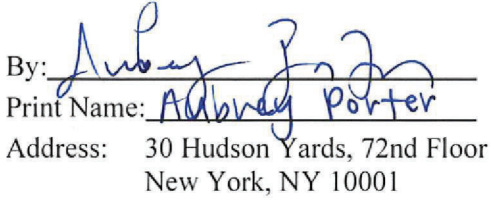 By: Aubrey Porter
Print Name: Aubrey Porter
Address: 30 Hudson Yards, 72nd Floor
New York, NY 10001